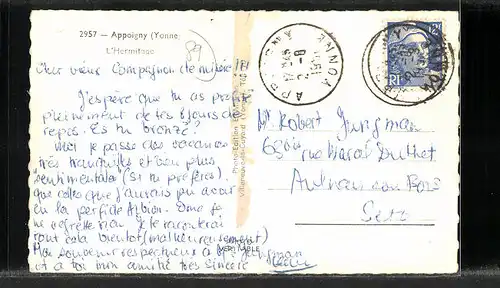 2957 - Appoigny (Yonne)
L'Hermitage
89
Cher vieux Compagnon de misère !
J'espère que tu as profité
pleinement de tes jours de
repos. Es tu bronzé?
Moi je passe des vacances
très tranquilles et bien plus
sentimentales (si tu préfères)
que celles que j'aurais pu avoir
en la perfide Albion. Donc je
ne regrette rien. Je te raconterai
tout cela bientot (malheureusement)
Mon souvenir respectueux à Me Jungman
et à toi mon amitié très sincère
Photo-Edition
Villeneuve
(Yonne)
PHOTO
VERITABLE
APPOIGNY
YONNE
17H45
2-8
APPOIGNY
YONNE
12F
RF
Mr Robert Jungman
rue Marcel
Aulnay sous Bois